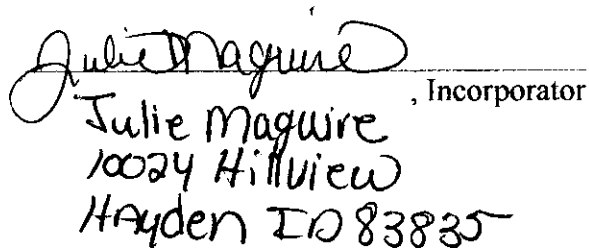 Julie Maguire
, Incorporator
Julie Maguire
10024 Hillview
Hayden ID 83835